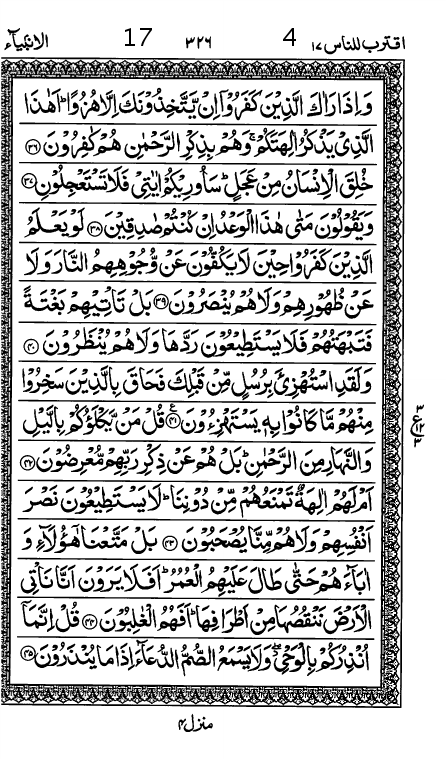 اقترب للناس ۱۷ 4 ۳۲۶ 17 الانبیآء
وَاِذَا رَاٰكَ الَّذِیْنَ كَفَرُوْۤا اِنْ یَّتَّخِذُوْنَكَ اِلَّا هُزُوًا ؕ اَهٰذَا
الَّذِیْ یَذْكُرُ اٰلِهَتَكُمْ ۚ وَهُمْ بِذِكْرِ الرَّحْمٰنِ هُمْ كٰفِرُوْنَ ﴿۳۶﴾
خُلِقَ الْاِنْسَانُ مِنْ عَجَلٍ ؕ سَاُورِیْكُمْ اٰیٰتِیْ فَلَا تَسْتَعْجِلُوْنِ ﴿۳۷﴾
وَیَقُوْلُوْنَ مَتٰی هٰذَا الْوَعْدُ اِنْ كُنْتُمْ صٰدِقِیْنَ ﴿۳۸﴾ لَوْ یَعْلَمُ
الَّذِیْنَ كَفَرُوْا حِیْنَ لَا یَكُفُّوْنَ عَنْ وُّجُوْهِهِمُ النَّارَ وَلَا
عَنْ ظُهُوْرِهِمْ وَلَا هُمْ یُنْصَرُوْنَ ﴿۳۹﴾ بَلْ تَاْتِیْهِمْ بَغْتَةً
فَتَبْهَتُهُمْ فَلَا یَسْتَطِیْعُوْنَ رَدَّهَا وَلَا هُمْ یُنْظَرُوْنَ ﴿۴۰﴾
وَلَقَدِ اسْتُهْزِئَ بِرُسُلٍ مِّنْ قَبْلِكَ فَحَاقَ بِالَّذِیْنَ سَخِرُوْا
مِنْهُمْ مَّا كَانُوْا بِهٖ یَسْتَهْزِءُوْنَ ﴿۴۱﴾ ع قُلْ مَنْ یَّكْلَؤُكُمْ بِالَّیْلِ
۳ ع ۱۲ ۳
وَالنَّهَارِ مِنَ الرَّحْمٰنِ ؕ بَلْ هُمْ عَنْ ذِكْرِ رَبِّهِمْ مُّعْرِضُوْنَ ﴿۴۲﴾
اَمْ لَهُمْ اٰلِهَةٌ تَمْنَعُهُمْ مِّنْ دُوْنِنَا ؕ لَا یَسْتَطِیْعُوْنَ نَصْرَ
اَنْفُسِهِمْ وَلَا هُمْ مِّنَّا یُصْحَبُوْنَ ﴿۴۳﴾ بَلْ مَتَّعْنَا هٰۤؤُلَآءِ وَ
اٰبَآءَهُمْ حَتّٰی طَالَ عَلَیْهِمُ الْعُمُرُ ؕ اَفَلَا یَرَوْنَ اَنَّا نَاْتِی
الْاَرْضَ نَنْقُصُهَا مِنْ اَطْرَافِهَا ؕ اَفَهُمُ الْغٰلِبُوْنَ ﴿۴۴﴾ قُلْ اِنَّمَاۤ
اُنْذِرُكُمْ بِالْوَحْیِ ۖ وَلَا یَسْمَعُ الصُّمُّ الدُّعَآءَ اِذَا مَا یُنْذَرُوْنَ ﴿۴۵﴾
منزل ۴